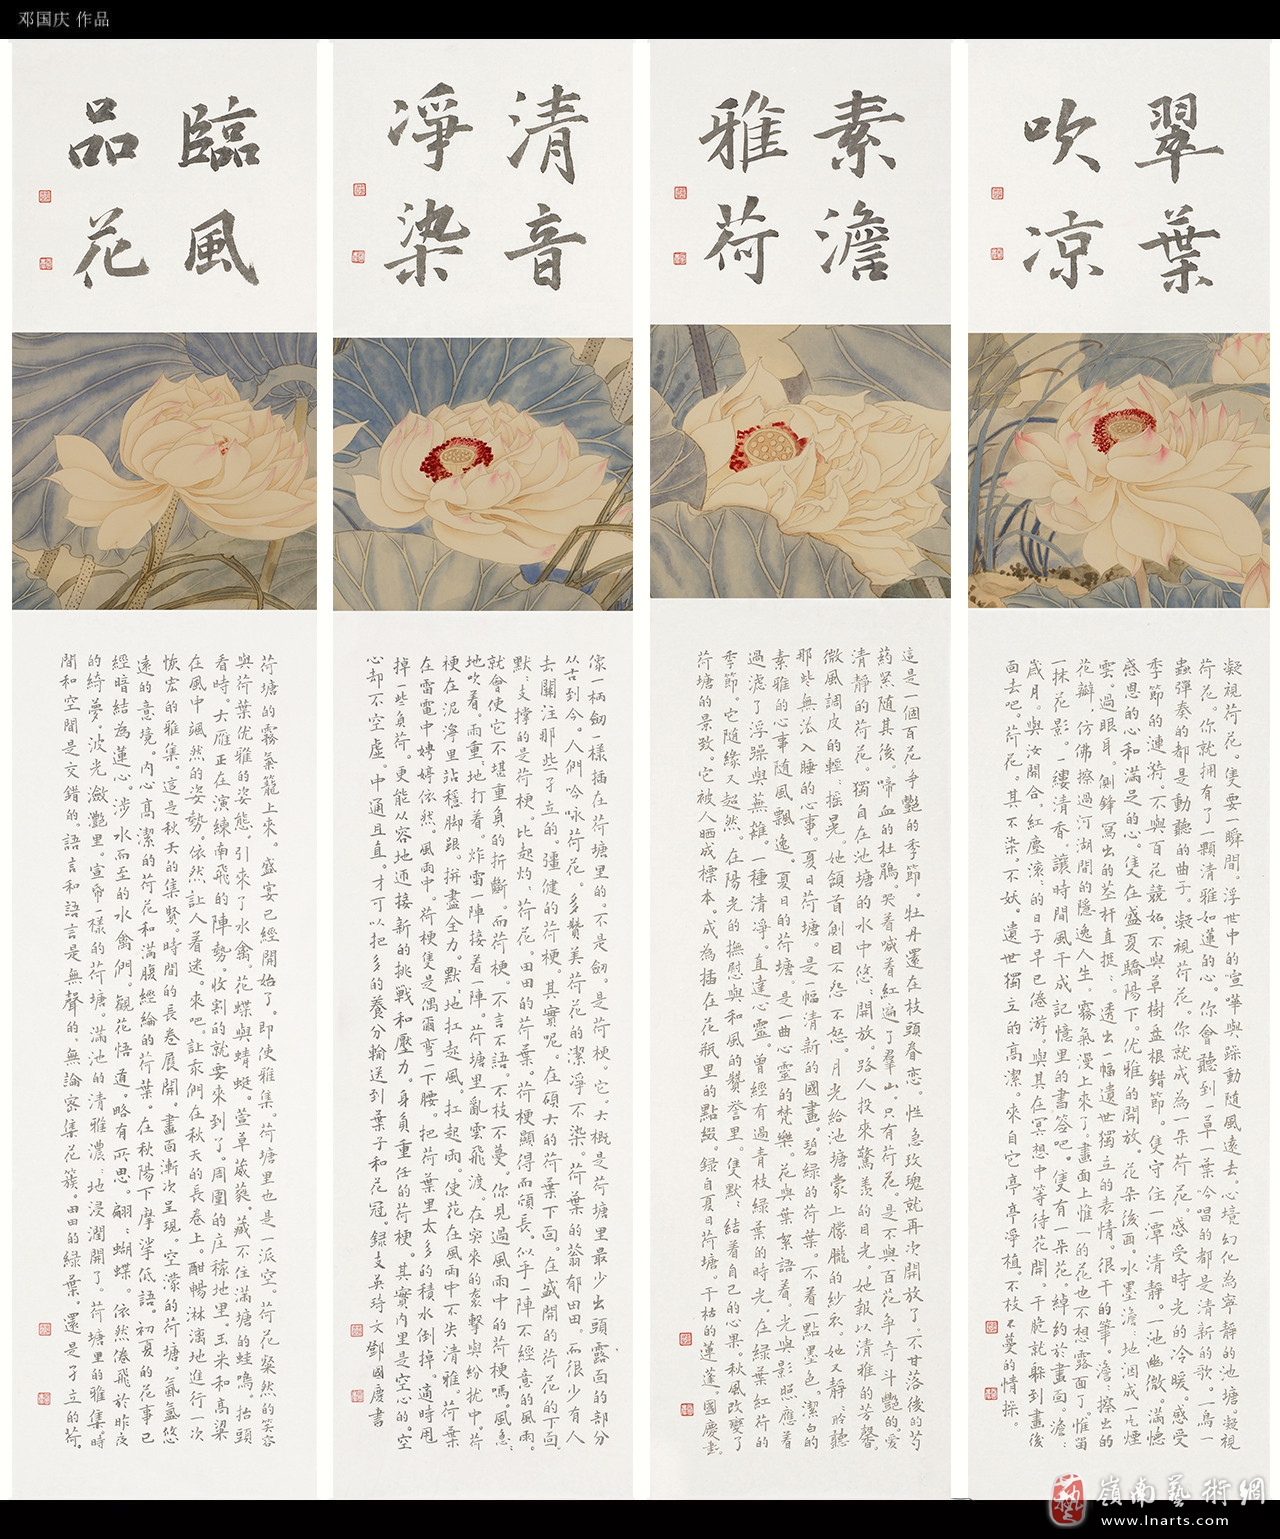 邓国庆 作品
翠葉
吹凉
素澹
雅荷
清音
淨染
臨風
品花
凝視荷花。隻要一瞬間。浮世中的喧嘩與躁動隨風遠去。心境幻化為寧靜的池塘。凝視
荷花。你就拥有了一顆清雅如蓮的心。你會聽到一草一葉吟唱的都是清新的歌。一鳥一
蟲彈奏的都是動聽的曲子。凝視荷花。你就成為一朵荷花。感受時光的冷暖。感受
季節的連漪。不與百花競妬。不與草樹盘根錯節。隻守住一潭清靜。一池幽微。滿懷
感恩的心和滿足的心。隻在盛夏驕陽下。优雅的開放。花朵後面。水墨澹澹地洇成一片煙
雲。過眼耳。側鋒寫出的茎杆直挺挺透出一幅遺世獨立的表情。很干的筆。澹澹擦出的
花瓣，仿佛擦過河湖間的隱逸人生。霧氣漫上來了。畫面上惟一的花也不想露面了。惟留
一抹花影。一縷清香。讓時間風干成記憶里的書签吧。隻有一朵花。綽約於畫面。澹澹
歲月。與汝開合。紅塵滚滚的日子早已倦游。與其在冥想中等待花開。干脆就躲到畫後
面去吧。荷花。其不染，不妖。遺世獨立的高潔。來自它亭亭淨植。不枝不蔓的情操。
這是一個百花争艷的季節。牡丹還在枝頭眷恋。性急玫瑰就再次開放了。不甘落後的芍
药緊随其後。啼血的杜鵑。哭着喊着红遍了羣山。只有荷花。是不與百花争奇斗艷的。爱
清靜的荷花。獨自在池塘的水中悠悠開放。路人投來驚羡的目光。她報以清雅的芳馨。
微風調皮的輕輕摇晃。她頷首側目不怨不怒。月光給池塘蒙上朦朧的紗衣。她又靜靜聆聽
那些無法入睡的心事。夏日荷塘。是一幅清新的國畫。碧绿的荷葉。不着一點墨色。潔白的
素雅的心事隨風飄逸。夏日的荷塘。是一曲心靈的梵樂。花與葉絮語着。光與影照應着
過滤了浮躁與蕪雜。一種清凈。直達心靈。曾經有過青枝绿葉的時光。在绿葉红荷的
季節。它随緣又超然。在陽光的撫慰與和風的贊誉里。隻默默結着自己的心果。秋風改變了
荷塘的景致。它被人晒成標本。成為插在花瓶里的點綴。録自夏日荷塘。干枯的蓮蓬。國慶書。
像一柄劍一樣插在荷塘里的。不是劍。是荷梗。它。大概是荷塘里最少出頭露面的部分
从古到今。人們吟咏荷花。多贊美荷花的潔淨不染。荷葉的蓊郁田田。而很少有人
去關注那些孑立的。彊健的荷梗。其實呢。在碩大的荷葉下面。在盛開的荷花的下面
默默支撑的是荷梗。比起灼灼荷花。田田的荷葉。荷梗顯得而颀長。似乎一陣不經意的風雨。
就會使它不堪重負的折斷。而荷梗。不言不語。不枝不蔓。你見過風雨中的荷梗嗎。風急急
地吹着。雨重重地打着。炸雷一陣接着一陣。荷塘里亂雲飛渡。在突來的袭擊與紛扰中。荷
梗在泥濘里站穩脚跟。拼盡全力。默默地扛起風。扛起雨。使花在風雨中不失清雅。荷葉
在雷電中娉婷依然。風雨中。荷梗隻是偶爾弯一下腰。把荷葉里太多的積水倒掉。適時甩
掉一些負荷。更能从容地迎接新的挑戰和壓力。身負重任的荷梗。其實内里是空心的。空
心却不空虚。中通且直。才可以把多的養分輸送到葉子和花冠。録支英琦文 鄧國慶書
荷塘的霧氣籠上來。盛宴已經開始了。即使雅集。荷塘里也是一派空。荷花粲然的笑容
與荷葉优雅的姿態。引來了水禽。花蝶與蜻蜓。萱草葳蕤。藏不住滿塘的蛙鳴。抬頭
看時。大雁正在演練南飛的陣勢。收割的就要來到了。周圍的庄稼地里。玉米和高粱
在風中飒然的姿勢。依然讓人着迷。來吧。让我們在秋天的長卷上。酣暢淋漓地進行一次
恢宏的雅集。這是秋天的集賢。時間的長卷展開。畫面漸次呈現。空濛的荷塘。氤氲悠
遠的意境。内心高潔的荷花和滿腹經綸的荷葉。在秋陽下摩挲低語。初夏的花事已
經暗結為蓮心。涉水而至的水禽們。觀花悟道。略有所思。翩翩蝴蝶。依然倦飛於昨夜
的綺夢。波光瀲灧里。宣帋一樣的荷塘。滿池的清雅濃濃地浸潤開了。荷塘里的雅集。時
間和空間是交錯的。語言和語言是無聲的。無論密集花簇。田田的绿葉。還是孑立的荷。
嶺南藝術網
www.lnarts.com